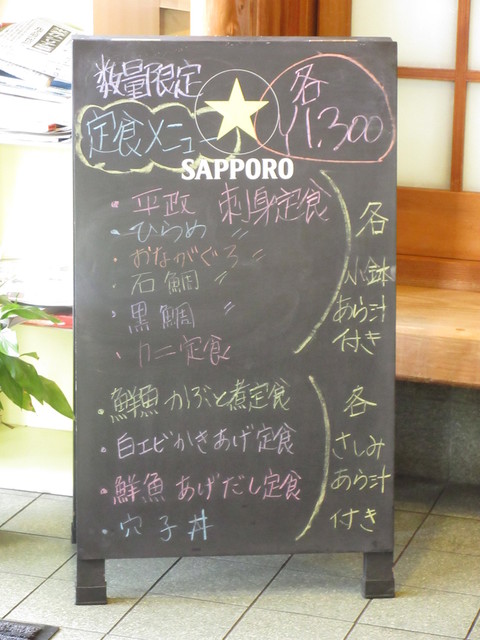 数量限定
定食メニュー
各
¥1,300
SAPPORO
・平政 刺身定食
・ひらめ 〃
・おながぐろ 〃
・石鯛 〃
・黒鯛 〃
・カニ定食
各
小鉢
あら汁
付き
・鮮魚かぶと煮定食
・白エビかきあげ定食
・鮮魚あげだし定食
・穴子丼
各
さしみ
あら汁
付き